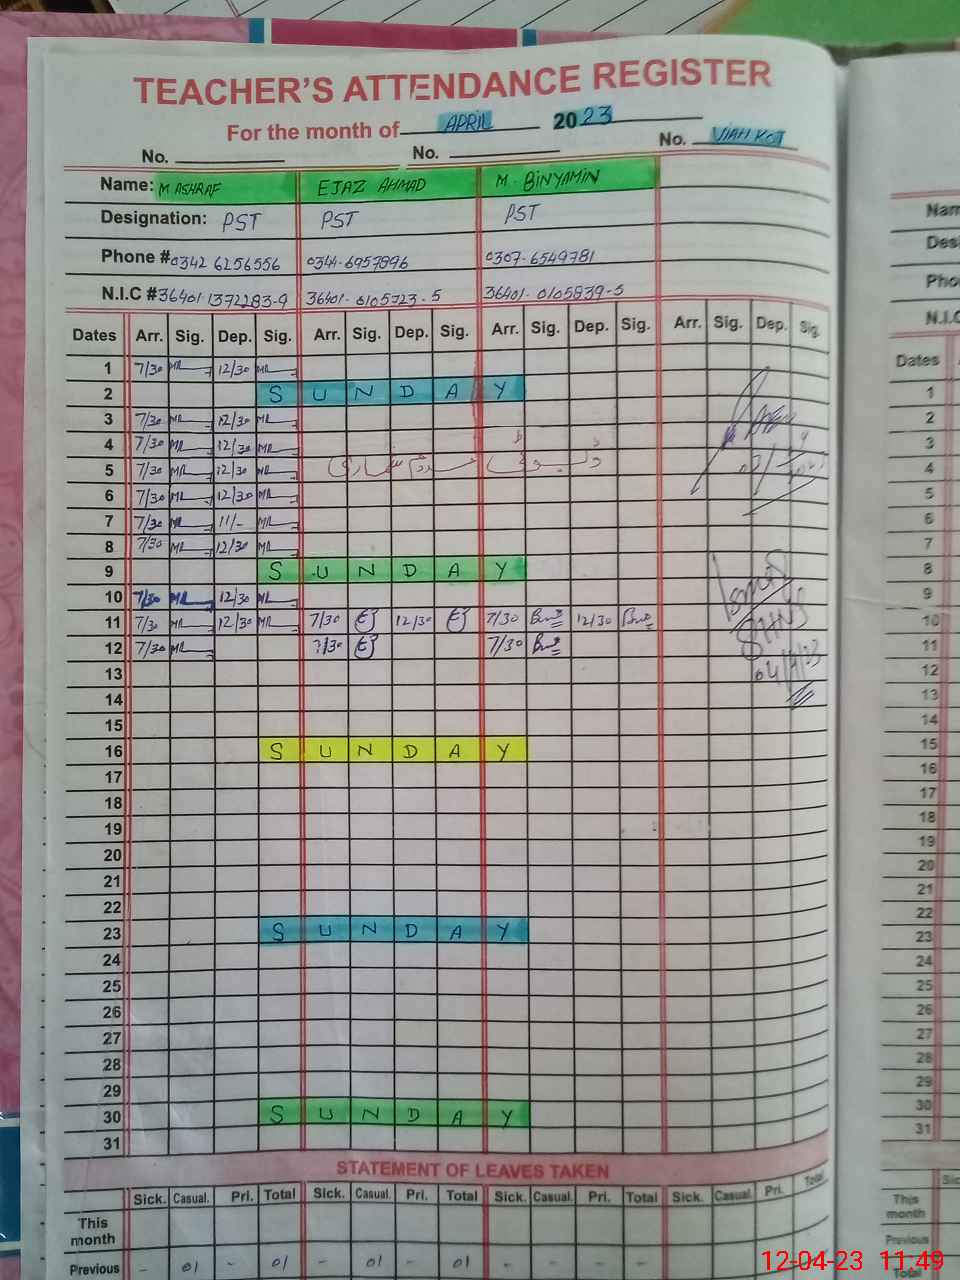 TEACHER'S ATTENDANCE REGISTER
For the month of APRIL 2023
No. No. No. VIAH KOT
Name: M ASHRAF EJAZ AHMAD M. BINYAMIN
Designation: PST PST PST
Phone # 0342 6256556 0344-6957896 0307-6549781
N.I.C # 36401-1372283-9 36401-0105723-5 36401-0105839-5
Dates Arr. Sig. Dep. Sig. Arr. Sig. Dep. Sig. Arr. Sig. Dep. Sig. Arr. Sig. Dep. Sig.
1 7/30 12/30
2 S U N D A Y
3 7/30 12/30
4 7/30 12/30
5 7/30 12/30
6 7/30 12/30
7 7/30 11/-
8 7/30 12/30
9 S U N D A Y
10 7/30 12/30
11 7/30 12/30 7/30 12/30 7/30 12/30
12 7/30 7/30 7/30
13
14
15
16 S U N D A Y
17
18
19
20
21
22
23 S U N D A Y
24
25
26
27
28
29
30 S U N D A Y
31
STATEMENT OF LEAVES TAKEN
Sick. Casual. Pri. Total Sick. Casual. Pri. Total Sick. Casual. Pri. Total Sick. Casual. Pri. Total
This month
Previous - 01 - 01 - 01 - 01 - - - -
12-04-23 11:49
Dates
1
2
3
4
5
6
7
8
9
10
11
12
13
14
15
16
17
18
19
20
21
22
23
24
25
26
27
28
29
30
31
This month
Previous
Total